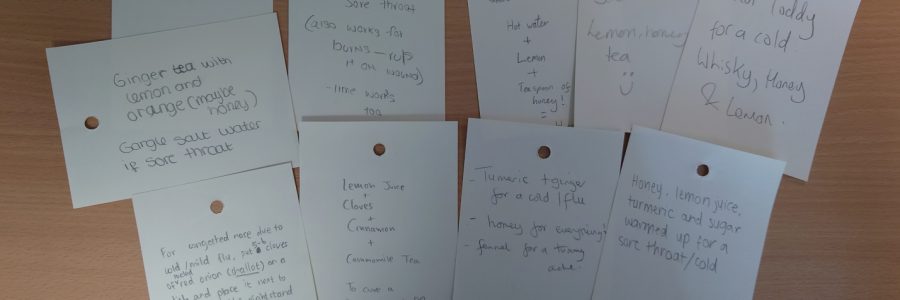 Ginger tea with
lemon and
orange (maybe
honey)
Gargle salt water
if sore throat
sore throat
(also works for
burns – rub
it on wound)
- lime works
too
Hot water
+
Lemon
+
Teaspoon of
honey!
=
Lemon, honey
tea
Toddy
for a cold.
Whisky, Honey
& Lemon.
For congested nose due to
cold/mild flu, put 5-6 cloves
of red onion (shallot) on a
and place it next to
Lemon Juice
+
Cloves
+
Cinnamon
+
Camomile Tea
To cure a
- Tumeric + ginger
for a cold/flu
- honey for everything!
- fennel for a tummy
ache.
Honey, lemon juice,
turmeric and sugar
warmed up for a
sore throat/cold